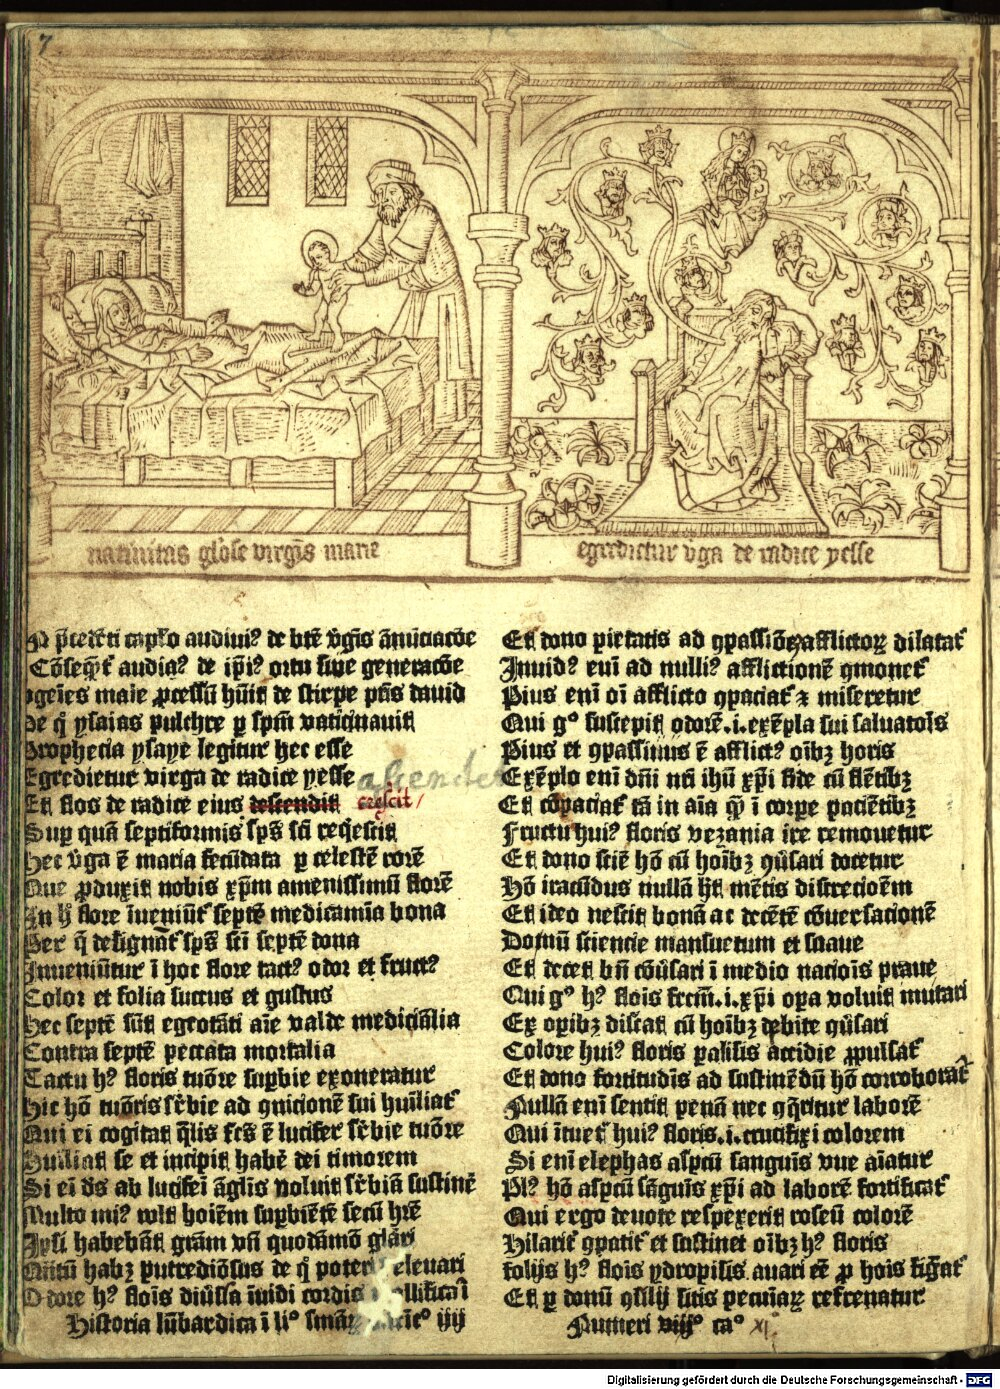 7
natiuitas gl̄ose virgīs marie
egredietur v̄ga de radice yesse
p̄cedēti capl̓o audiuiꝰ de btē v̄gīs ānūciacōe
Cōseqn̄t̓ audiāꝰ de ip̄iꝰ ortu siue generacōe
ꝓgeīes marie ꝓcessū hūit de stirpe pr̄is dauid
De q̄ ysaias pulchre p spm̄ vaticinauit
Prophecia ysaye legitur hec esse
Egredietur virga de radice yesse ascendet
Et flos de radice eius descendit crescit
Suꝑ quā septiformis sps̄ sc̄i reqescit
Hec v̄ga ē maria fecūdata p celestē rorē
Que ꝓduxit nobis xp̄m amenissimū florē
In hͦ flore īueniūt̓ septē medicamīa bona
Per q̄ desīgnāt̓ sps̄ sc̄i septē dona
Inueniūtur ī hoc flore tactꝰ odor et fructꝰ
Color et folia succus et gustus
Hec septē sūt egrotāti aīe valde medicīalia
Contra septē peccata mortalia
Tactu hꝰ floris tuōre supbie exoneratur
Hic hō tuōris sꝑbie ad ꝯnicionē sui hūiliat̓
Qui ei cogitat q̄lis fcs̄ ē lucifer sꝑbie tuōre
Huīliat se et incipit habē dei timorem
Si eī ds̄ ab luciferi āglīs noluit sꝑbiā sustinē
Multo miꝰ volt hoīem supbiētē secū hr̄e
Ipsi habebāt grām vn̄ quodāmō glāri
putrediōsus de q̄ poterit eleuari
Odore hꝰ flois diūssa īuidi cordis mollificat̓
Historia lūbardica ī liᵒ iiij
Et dono pietatis ad ꝯpassiōꝫ afflictoꝝ dilatat̓
Inuidꝰ enī ad nulliꝰ afflictionē ꝯmouet̓
Pius enī oī afflicto ꝯpacit̓ ⁊ miseretur
Qui gͦ suscepit odorē .i. exēpla sui saluatoīs
Pius et ꝯpassiuus ē afflictꝰ oībꝫ horis
Exēplo enī dn̄i nr̄i ihū xp̄i fide cū flētibꝫ
Et cōpacit̓ tā in aīa q̄ ī corpe pacientibꝫ
Fructu huiꝰ floris vezania ire remouetur
Et dono sciē hō cū hoībꝫ ꝯūsari docetur
Hō iracūdus nullā hꝫ mētis discrecioēm
Et ideo nescit bonā ac decētē cōuersacionē
Donū sciencie mansuetum et suaue
Et decet bn̄ cōūsari ī medio nacioīs praue
Qui gͦ hꝰ flois frcm̄ .i. xp̄i oꝑa voluit imitari
Ex oꝑibꝫ discat cū hoībꝫ debite ꝯūsari
Colore huiꝰ floris palisis accidie ꝓpulsat̓
Et dono fortitudīs ad sustinēdū hō corroborat̓
Nullā enī sentit penā nec ꝯq̄ritur laborē
Qui ītuet̓ huiꝰ floris .i. crucifixi colorem
Si enī elephas aspcū sanguīs vue aīatur
Plꝰ hō aspcū sāguīs xp̄i ad laborē fortificat̓
Qui ergo deuote respexerit roseū colorē
Hilarit̓ ꝯpatit̓ et sustinet oībꝫ hꝰ floris
folijs hꝰ flois ydropisis auari
Et p donū ꝯsilij sitis pecuīaꝝ refrenatur
Numeri viijͦ caͦ xi
Digitalisierung gefördert durch die Deutsche Forschungsgemeinschaft - DFG